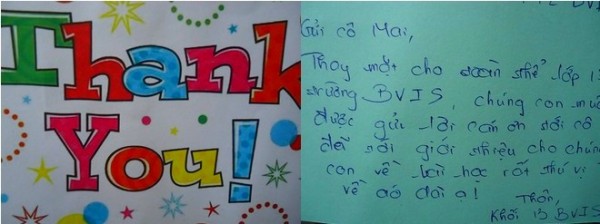 Thank
You!
Gửi cô Mai,
Thay mặt cho đoàn thể lớp 1
trường BVIS, chúng con muố
được gửi lời cán ơn tới cô
đến giới thiệu cho chún
con về bài học rất thú vị
về áo dài ạ!
Thân,
Khối 13 BVIS